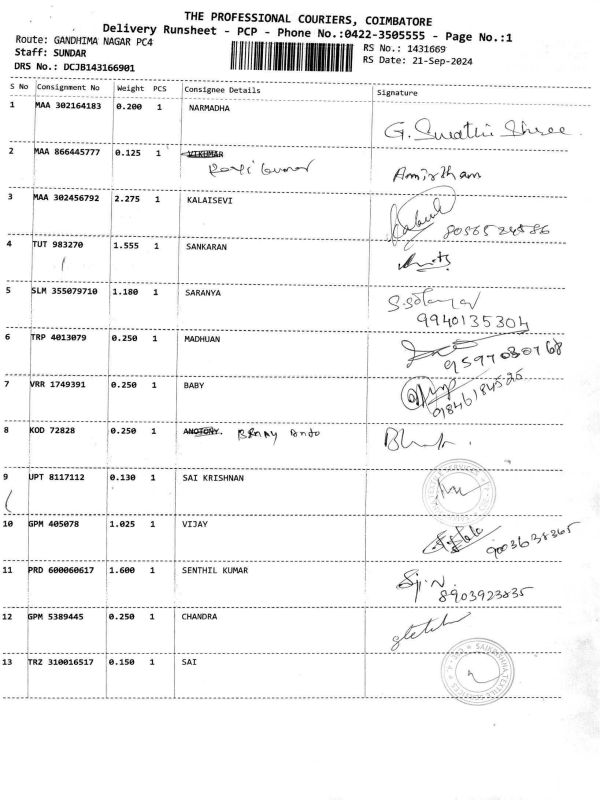 THE PROFESSIONAL COURIERS, COIMBATORE
Delivery Runsheet - PCP - Phone No.:0422-3505555 - Page No.:1
Route: GANDHIMA NAGAR PC4
RS No.: 1431669
Staff: SUNDAR
RS Date: 21-Sep-2024
DRS No.: DCJB143166901
S No Consignment No Weight PCS Consignee Details Signature
1 MAA 302164183 0.200 1 NARMADHA G. Swathi Shree
2 MAA 866445777 0.125 1 Amirtham
3 MAA 302456792 2.275 1 KALAISEVI
4 TUT 983270 1.555 1 SANKARAN
5 SLM 355079710 1.180 1 SARANYA
9940135304
6 TRP 4013079 0.250 1 MADHUAN
9597080768
7 VRR 1749391 0.250 1 BABY
9846184525
8 KOD 72828 0.250 1 ANOTONY.
9 UPT 8117112 0.130 1 SAI KRISHNAN
10 GPM 405078 1.025 1 VIJAY
9003638365
11 PRD 600060617 1.600 1 SENTHIL KUMAR
8903923835
12 GPM 5389445 0.250 1 CHANDRA
13 TRZ 310016517 0.150 1 SAI